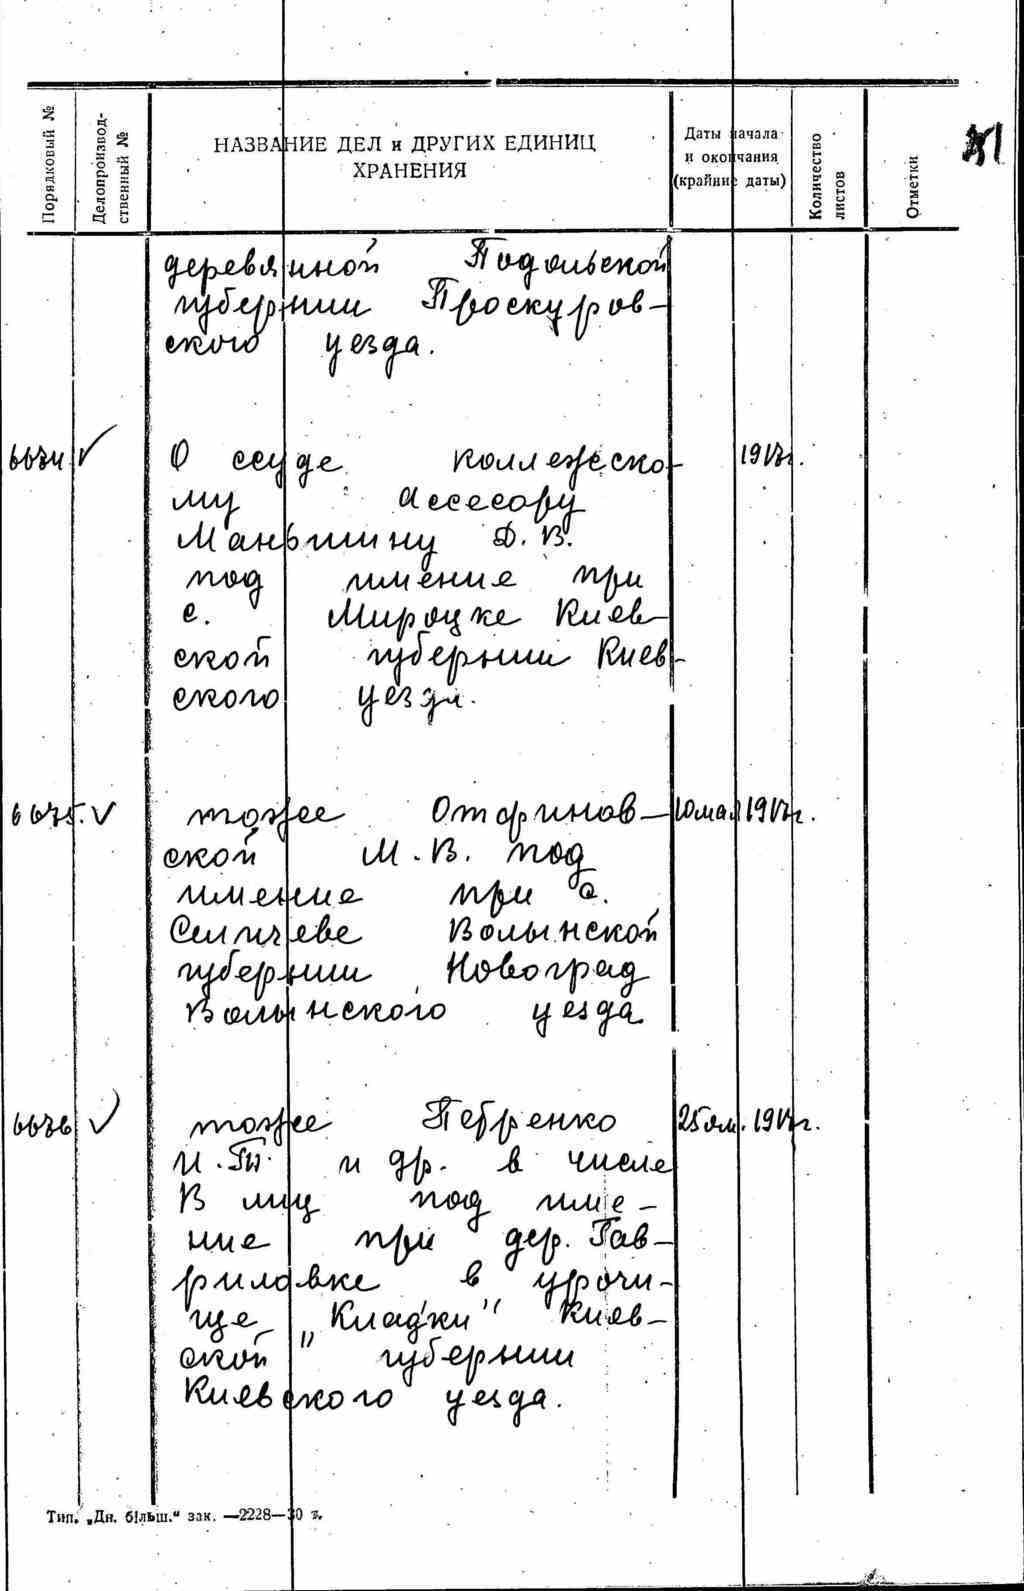 Порядковый №
Делопроизвод-
ственный №
НАЗВАНИЕ ДЕЛ и ДРУГИХ ЕДИНИЦ
ХРАНЕНИЯ
Даты начала
и окончания
(крайние даты)
Количество
листов
Отметки
деревянной Подольской
губернии Проскуров-
ского уезда.
6674 ✓ О ссуде коллежско- 1917г.
му Ассесору
Маньшину Д. В.
под имение при
с. Мироцке Киев-
ской губернии Киев-
ского уезда.
6675. ✓ тоже Отфинов- 10 мая 1917г.
ской М. В. под
имение при с.
Волынской
губернии Новоград
Волынского уезда
6676 ✓ тоже Петренко 25 ян. 1917г.
И. и др. в числе
лиц под име-
ние при дер. Гав-
риловке в урочи-
ще „Кладки" Киев-
ской губернии
Киевского уезда.
Тип. „Дн. більш." зак. —2228—30 г.